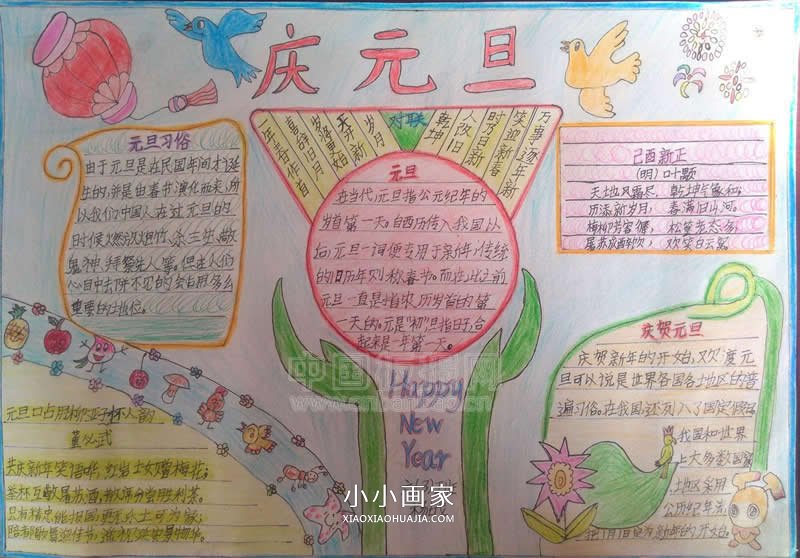 庆元旦
元旦习俗
由于元旦是在民国年间才诞
生的,并是由春节演化而来,所
以我们中国人在过元旦的
时候燃放炮竹,杀三生,敬
鬼神,拜祭先人等。但在人们
重要的地位。
对联
岁月
乾坤
人改旧
时乃日新
笑迎新春
万事逐年新
元旦
在当代,元旦指公元纪年的
岁首第一天。自西历传入我国以
后,元旦一词便专用于新年,传统
的旧历年则称春节。而在此之前
元旦一直是指农历岁首的第
一天的。元是"初"旦指日子,合
起来是一年第一天。
己酉新正
(明)叶颙
天地风霜尽,乾坤气象和;
历添新岁月,春满旧山河。
梅柳芳容徲,松篁老态多
屠苏成醉饮,欢笑白云窝
庆贺元旦
庆贺新年的开始,欢度元
旦可以说是世界各国各地区的普
遍习俗。在我国,还列入了国定假日
我国和世界
上大多数国家
地区采用
公历纪年法,
把1月1日定为新年的开始。
Happy
New
Year
元旦口占用柳亚子怀人韵
董必武
共庆新年笑语哗,红岩士女赠梅花;
举杯互敬屠苏酒,散席分尝胜利茶。
只有精忠能报国,更无乐土可为家;
中国传媒网
小小画家
XIAOXIAOHUAJIA.COM